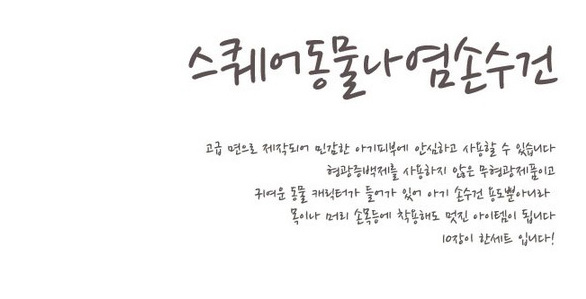 스퀘어동물나염손수건
고급 면으로 제작되어 민감한 아기피부에 안심하고 사용할 수 있습니다
형광증백제를 사용하지 않은 무형광제품이고
귀여운 동물 캐릭터가 들어가 있어 아기 손수건 용도뿐아니라
목이나 머리 손목등에 착용해도 멋진 아이템이 됩니다
10장이 한세트 입니다!